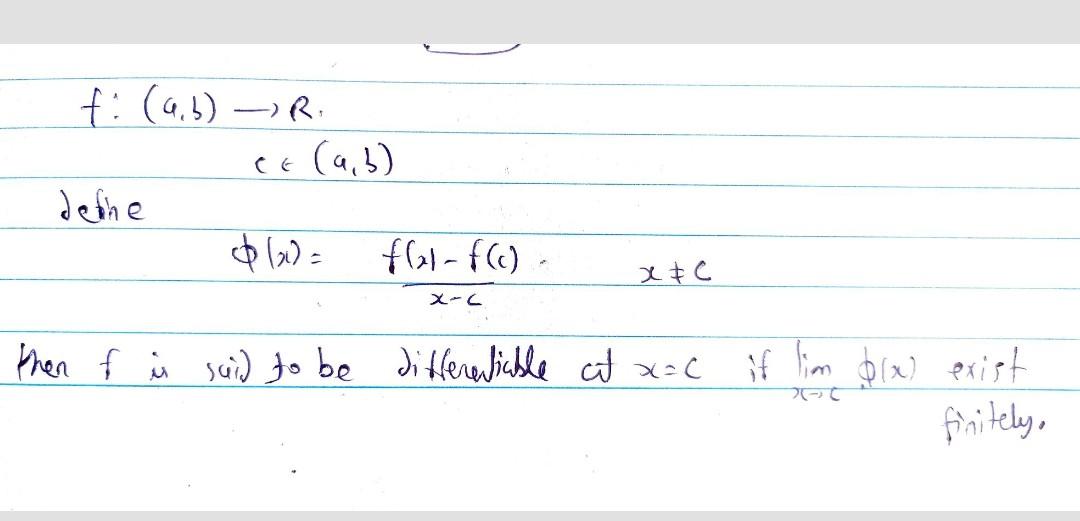 f: (a,b) → R.
c ∈ (a,b)
define
φ(x) = f(x) - f(c) / x-c    x ≠ c
then f is said to be differentiable at x=c if lim x→c φ(x) exist
finitely.